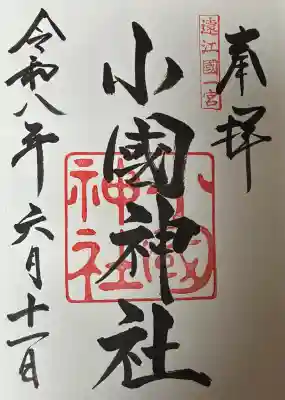 奉拝
遠江國一宮
小國神社
小國神社
令和八年六月十一日